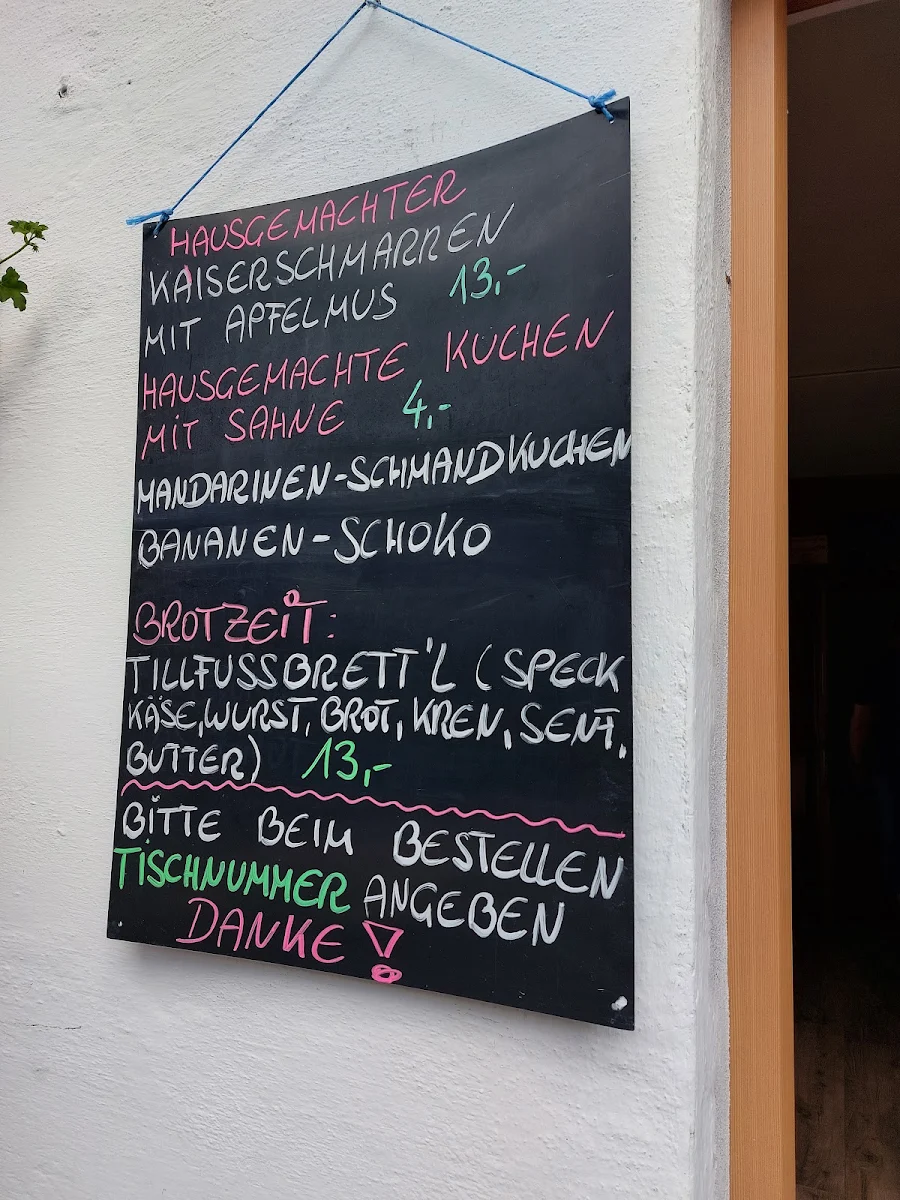 HAUSGEMACHTER
KAISERSCHMARREN
MIT APFELMUS 13,-
HAUSGEMACHTE KUCHEN
MIT SAHNE 4,-
MANDARINEN-SCHMANDKUCHEN
BANANEN-SCHOKO
BROTZEIT:
TILLFUSSBRETT'L (SPECK
KÄSE, WURST, BROT, KREN, SENF,
BUTTER) 13,-
BITTE BEIM BESTELLEN
TISCHNUMMER ANGEBEN
DANKE!